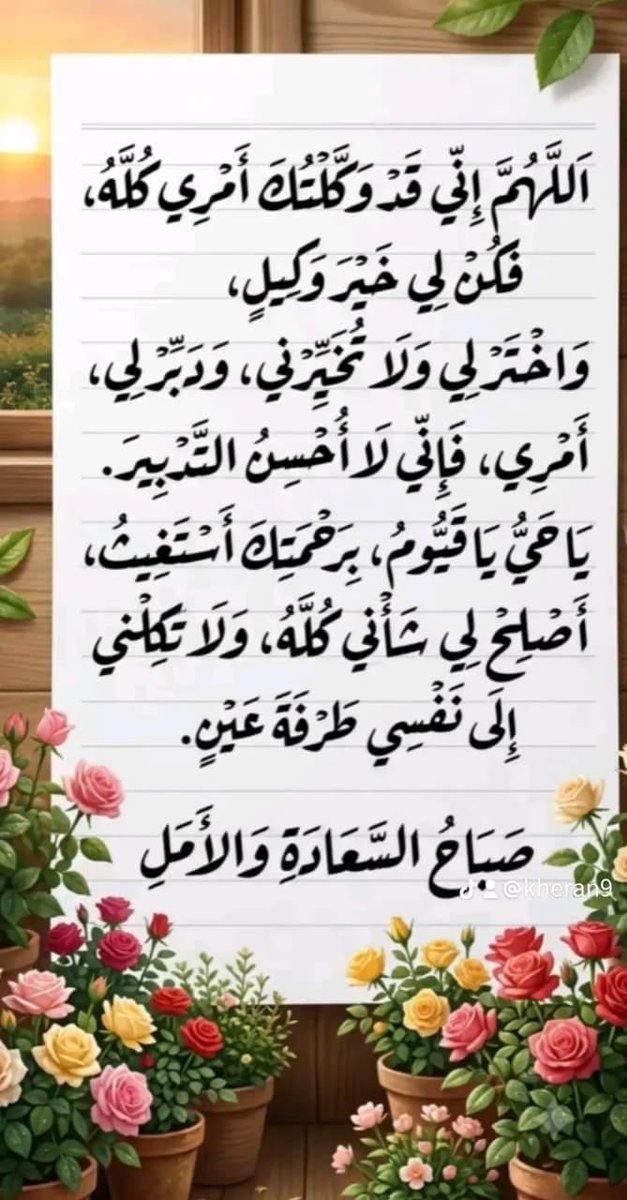 اَللَّهُمَّ إِنِّي قَدْ وَكَّلْتُكَ أَمْرِي كُلَّهُ،
فَكُنْ لِي خَيْرَ وَكِيلٍ،
وَاخْتَرْ لِي وَلَا تُخَيِّرْنِي، وَدَبِّرْ لِي،
أَمْرِي، فَإِنِّي لَا أُحْسِنُ التَّدْبِيرَ.
يَا حَيُّ يَا قَيُّومُ، بِرَحْمَتِكَ أَسْتَغِيثُ،
أَصْلِحْ لِي شَأْنِي كُلَّهُ، وَلَا تَكِلْنِي
إِلَى نَفْسِي طَرْفَةَ عَيْنٍ.
صَبَاحُ السَّعَادَةِ وَالأَمَلِ
@kheran9